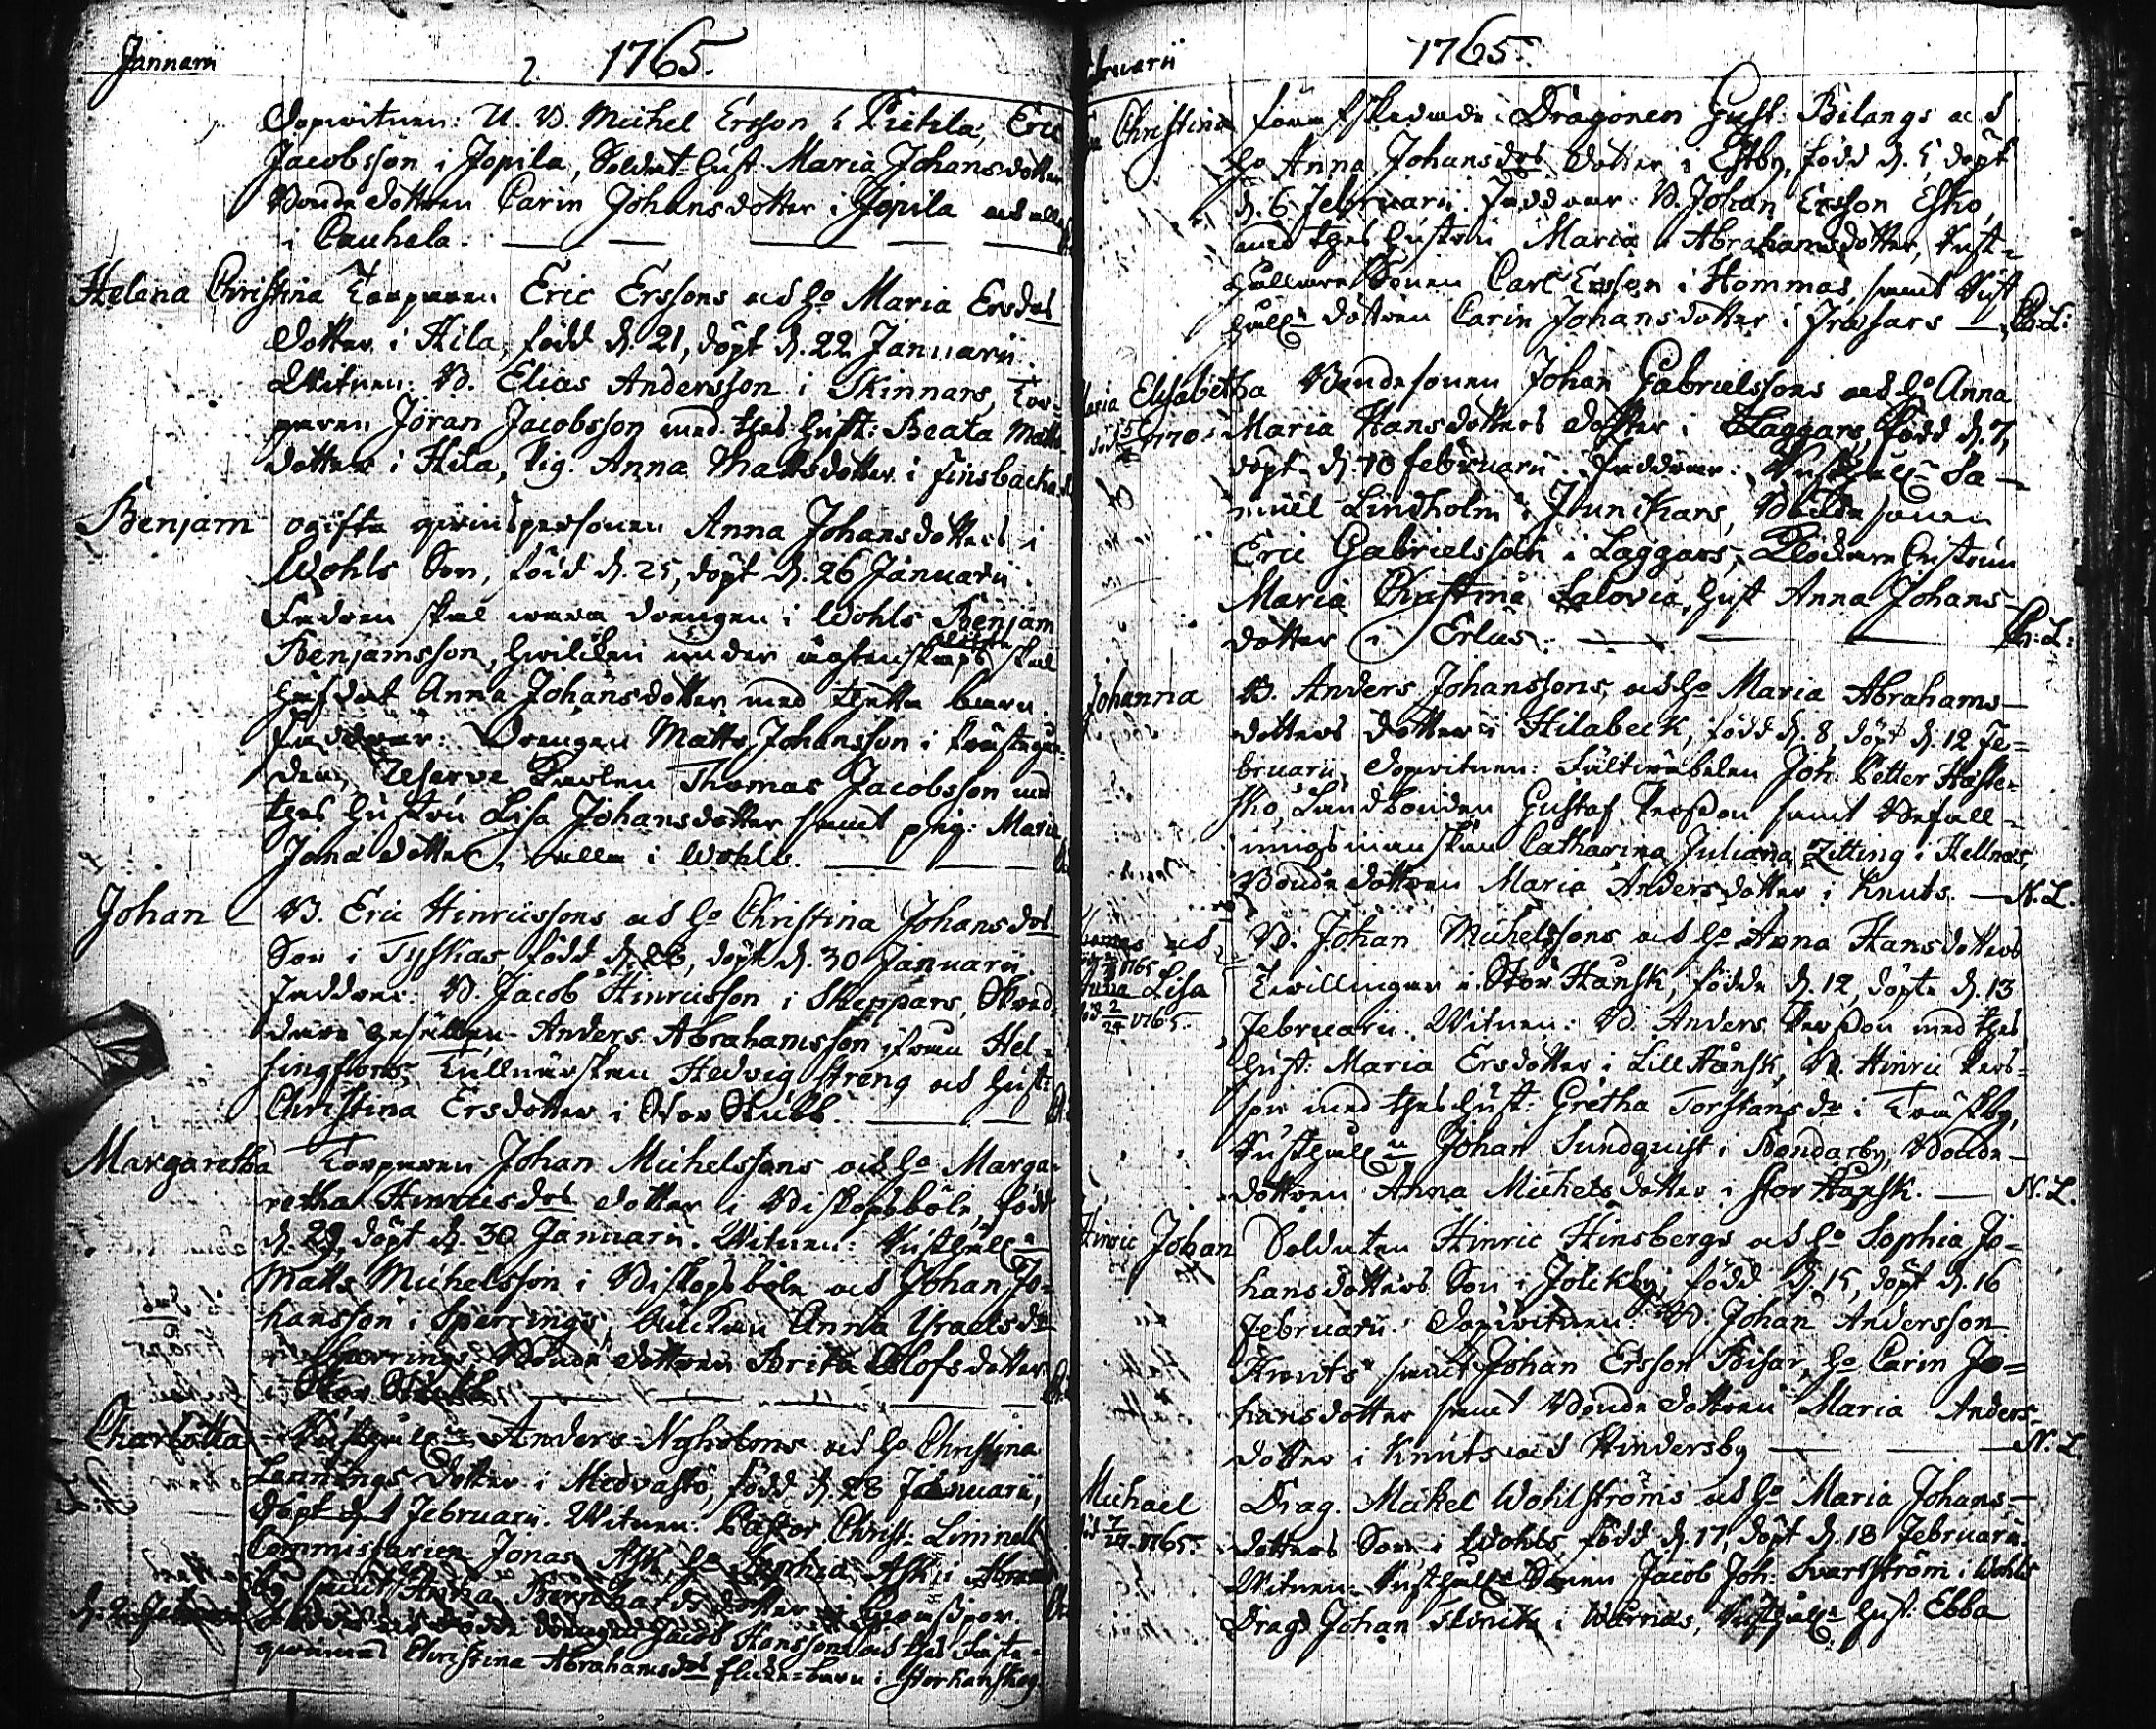 Januarii
2 1765.
Dopwitnen: U. B. Michel Ersson i Pietila, Eric
Jacobsson i Jopila, Soldat Hust. Maria Johansdotter
Bondedottren Carin Johansdotter i Jopila ach alla
i Cauhala.
Helena Christina Torparen Eric Erssons ach Ho Maria Ersdrs
Dotter i Hila, född d. 21, döpt d. 22 Januarii.
Witnen: B. Elias Andersson i Skinnars, Tor-
paren Jöran Jacobsson med thes Hust: Beata Matts-
dotter i Hila, Pig. Anna Mattsdotter i Finsbacka
Benjam ogifta qwinspersonen Anna Johansdotters i
Wohls Son, född d. 25, döpt d. 26 Januarii.
Fadren skal wara drengen i Wohls Benjam
Benjamsson, hwilken under ägtenskaps skal
häfdat Anna Johansdotter med thetta barn.
Faddrar: Drengen Matts Johansson i Prästgår-
den, Reserve Karlen Thomas Jacobsson med
thes Hustru Lisa Johansdotter samt pig: Maria
Jona dotter, alla i Wohls.
Johan B. Eric Hinricssons ach Ho Christina Johansdrs
Son i Tyskas, född d. 28, döpt d. 30 Januarii.
Faddrar: B. Jacob Hinricsson i Skeppars, Skred-
dare gesällen Anders Abrahamsson ifrån Hel-
singfors, Hedvig Streng ach Hust:
Christina Ersdotter i Stor Stubb.
Margaretha Torparen Johan Michelssons ach Ho Marga-
retha Hinricsdrs dotter i Biskopsböle, född
d. 29, döpt d. 30 Januarii. Witnen: Rusthålln
Matts Michelsson i Biskopsböle ach Johan Jo-
hansson i Sperrings, Enckan Anna Israelsdr
i Sperrings, Bonde dottren Brita Olofsdotter
i Stor Stubb.
Charlotta Rusthålln Anders Nyholms ach Ho Christina
Lennings Dotter i Medvastö, född d. 28 Januarii,
döpt d. 1 Februarii. Witnen: Pastor Christ: Liminell
Commissarien Jonas Ask Ho Sophia Ask i
by samt Anna dotter i
drengen Jacob Hanssons ach thes fäste-
qwinnas Christina Abrahamsdrs flicke-barn i Storhanskog
Februarii
1765.
Christina Dragonen Gust: Bilangs ach
Ho Anna Johansdrs dotter i Estby, född d. 5 döpt
d. 6 Februarii. Faddrar: B. Johan Ersson Esko,
med thes Hustru Maria Abrahamsdotter, Rust-
hållare Sonen Carl Ersson i Hommas, samt Rust
hålln dottren Carin Johansdotter i Frässars — Ch: L:
Maria Elisabetha Bondesonen Johan Gabrielssons ach Ho Anna
Maria Hansdotters dotter i Laggars, född d. 7,
död 1770.
döpt d. 10 februarii. Faddrar: Rusthålln Sa-
muel Lindholm i Junkars, Bonde sonen
Eric Gabrielsson i Laggars, Klockare Enckan
Maria Christina Lalovia, Hust Anna Johans-
dotter i Erlas. Ch: L:
Johanna B. Anders Johanssons ach Ho Maria Abrahams-
dotters dotter i Hilabeck, född d. 8, döpt d. 12 Fe-
bruarii. Dopwitnen: Fältwäbelen Joh: Petter Haste-
sko, Landbonden Gustaf Persson samt Befall-
ningsmanskan Catharina Juliana Zitting i Hellnäs,
Bonde dottren Maria Andersdotter i Knuts. — N. L.
Thomas ach B. Johan Michelssons ach Ho Anna Hansdotters
1765
Anna Lisa Twillingar i Stor Hansk, födde d. 12, döpte d. 13
död 2/24 1765.
Februarii. Witnen: B. Anders Persson med thes
Hust: Maria Ersdotter i Lill Hansk, B. Hinric Pers-
son med thes Hust: Gretha Torstansdr iTräskby,
Rusthålln Johan Sundquist i Bondarby, Bonde-
dottren Anna Michelsdotter i Stor Hansk. — N. L.
Hinric Johan Soldaten Hinric Hinsbergs ach Ho Sophia Jo-
hansdotters Son i Jolckby, född d. 15, döpt d. 16
Februarii. Dopwitnen: B. Johan Andersson
Knuts samt Johan Ersson Bisar, Ho Carin Jo-
hansdotter samt Bonde dottren Maria Anders-
dotter i Knuts ach Hindersby — N. L.
Michael Drag. Mickel Wohlströms ach Ho Maria Johans-
död 1765.
dotters Son i Wohls född d. 17, döpt d. 18 Februarii.
Witnen: Rusthålls Sonen Jacob Joh: Svartström i Wohls
Drag: Johan Flinck i Wårnäs, Rusthålln Hust: Ebba